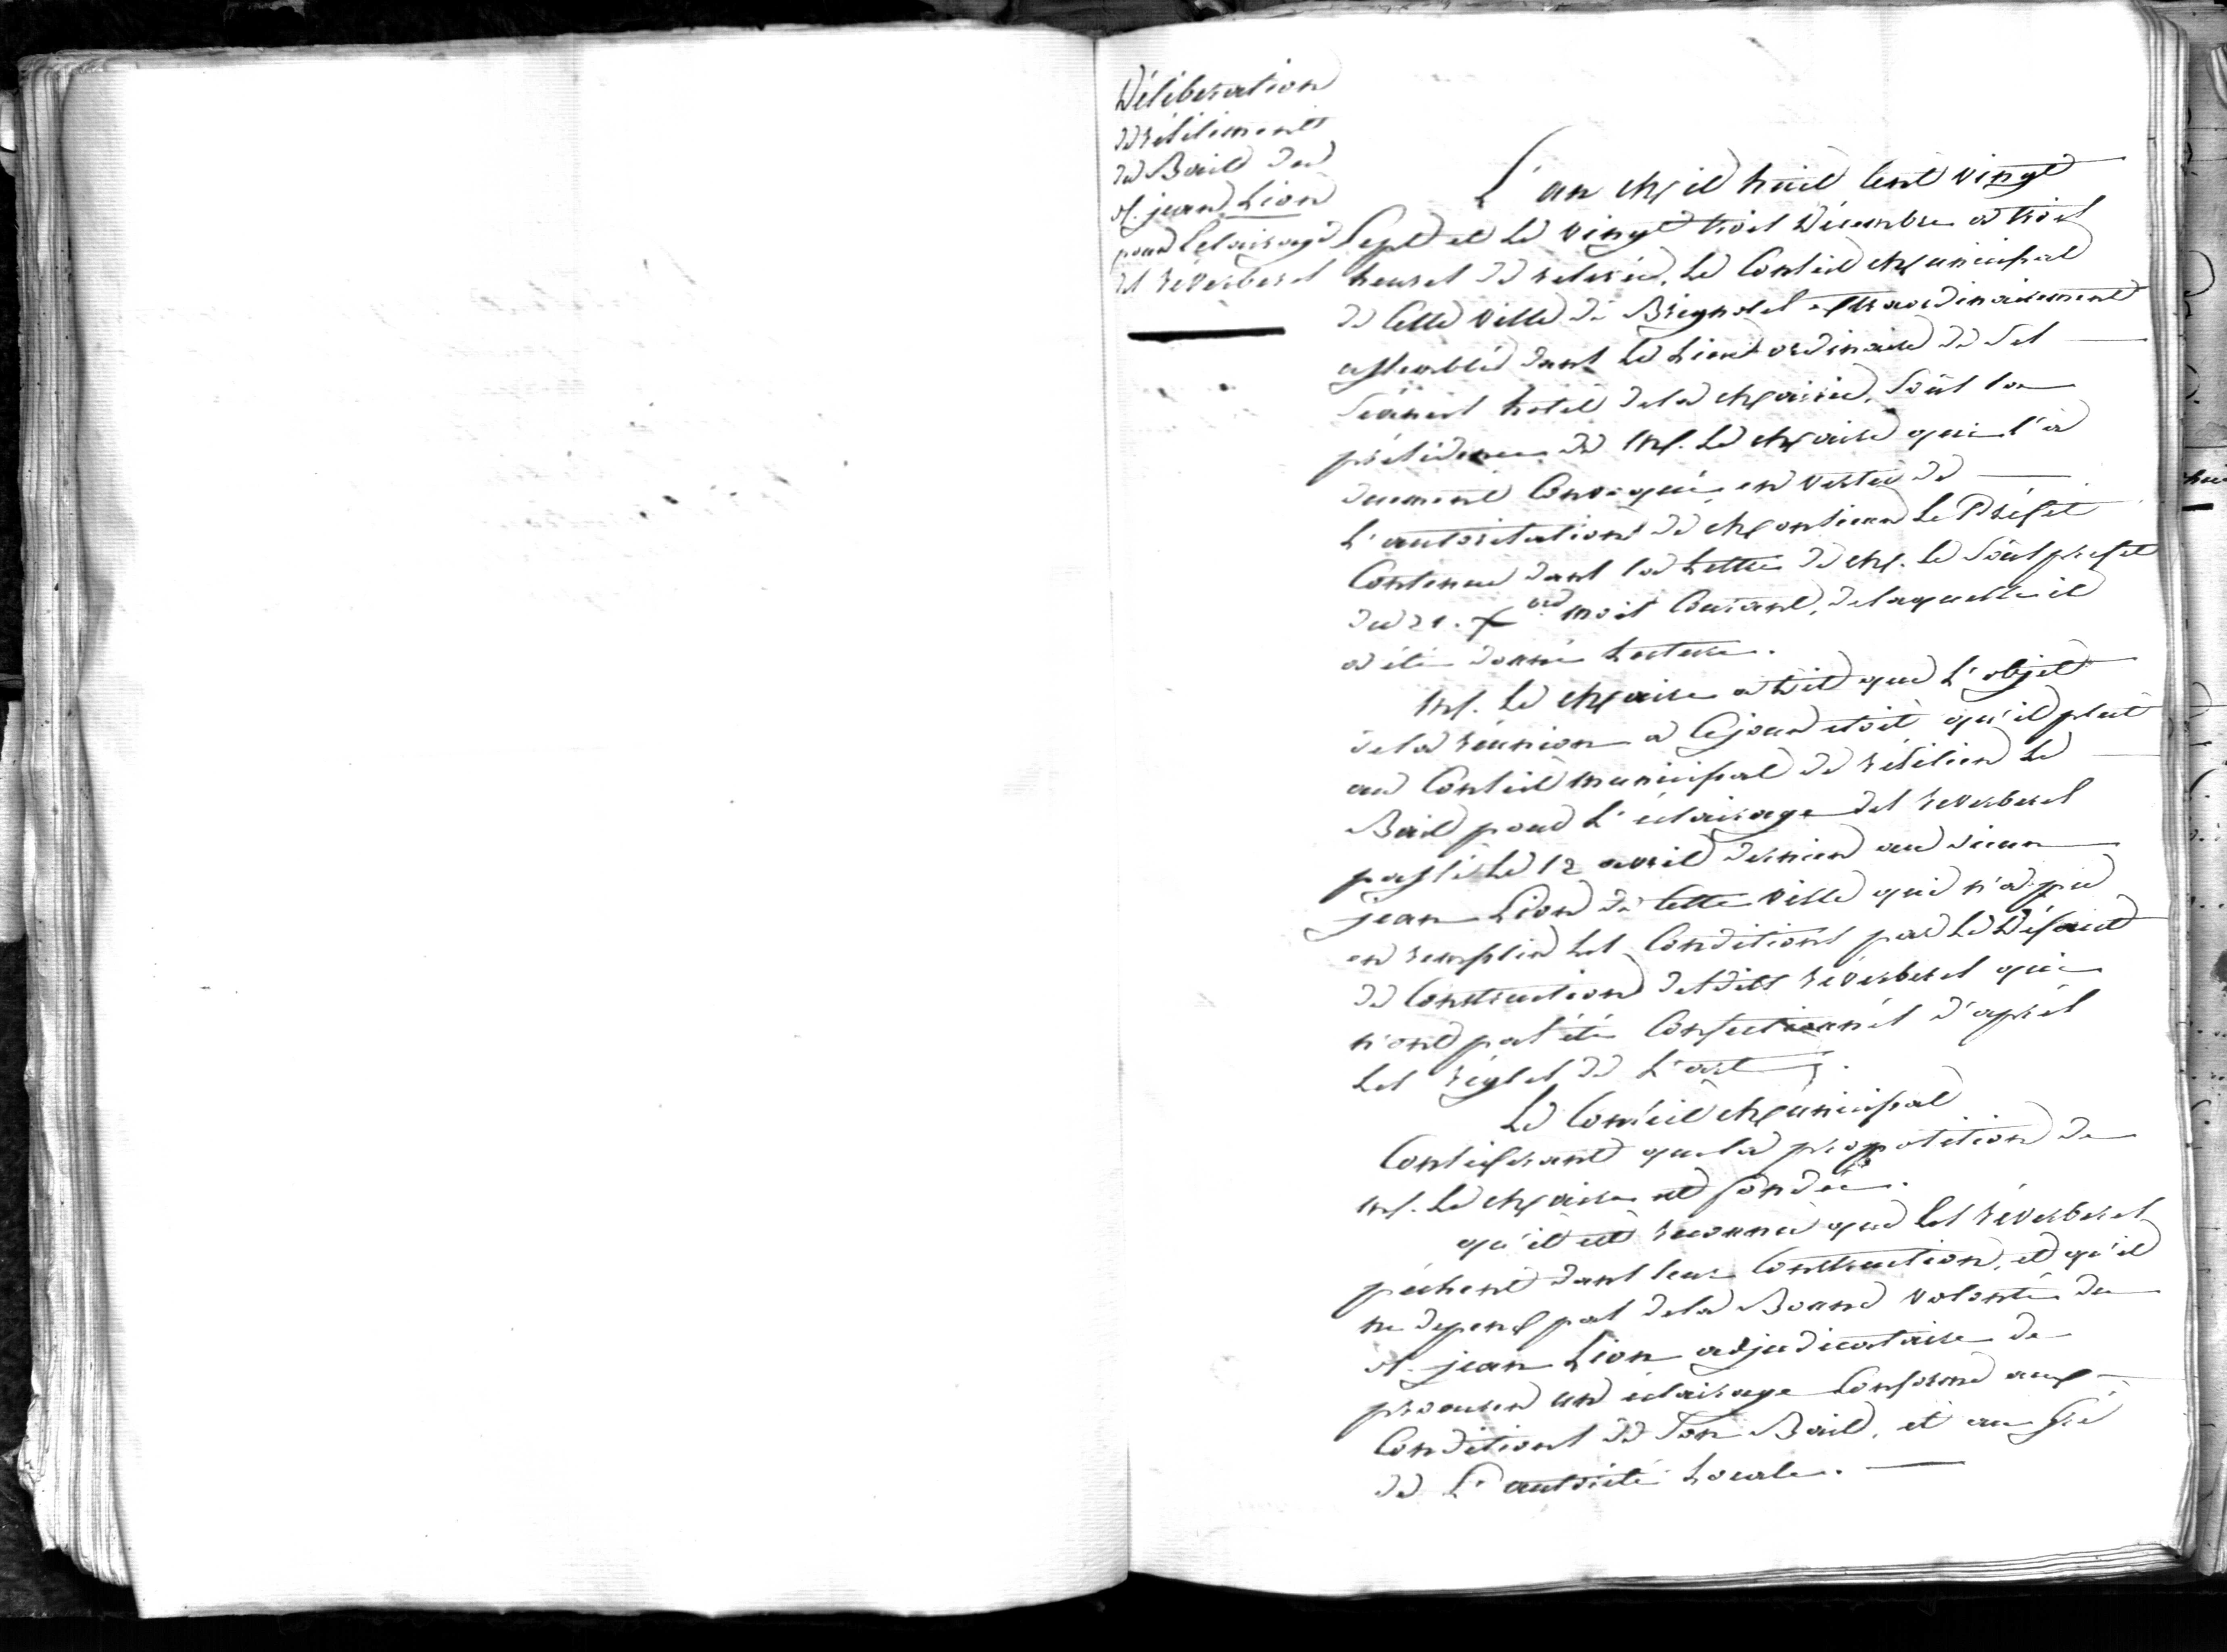 Déliberation
de résiliment
du Bail du
S. jean Lion
pour Leclairage
des réverberes
L'an Mil huit Cent vingt
Sept et le vingt trois Décembre a trois
heures de relevée, Le Conseil Municipal
de Cette ville de Brignoles extraordinairement
assemblé dans le Lieu ordinaire de Ses
Séances hotel de la Mairie, Sous la
présidence de M. Le Maire qui l'a
duement Convoqué en vertu de
L'autorisation de Monsieur Le Préfet
Contenue dans la Lettre de M. Le Sous préfet
du 21. Xbre mois Courant, de laquelle il
a été donné Lecture.
M. Le Maire a dit que L'objet
de la réunion a Cejour etoit qu'il plut
au Conseil municipal de résilier Le
Bail pour L'éclairage des reverberes
passé Le 12 avril dernier au sieur
jean Lion de Cette ville qui n'a pu
en remplir Les Conditions par Le Défaut
de Construction desdits réverberes qui
n'ont pas été Confectionnés d'après
Les régles de L'art.
Le Conseil Municipal
Considerant que la proposition de
M. Le Maire est fondée.
qu'il est reconnu que Les réverberes
péchent dans leur Construction, et qu'il
ne depend pas de la Bonne volonté du
S. jean Lion adjudicataire de
procurer un éclairage Conforme aux
Conditions de Son Bail, et au Gré
de L'autorité Locale.